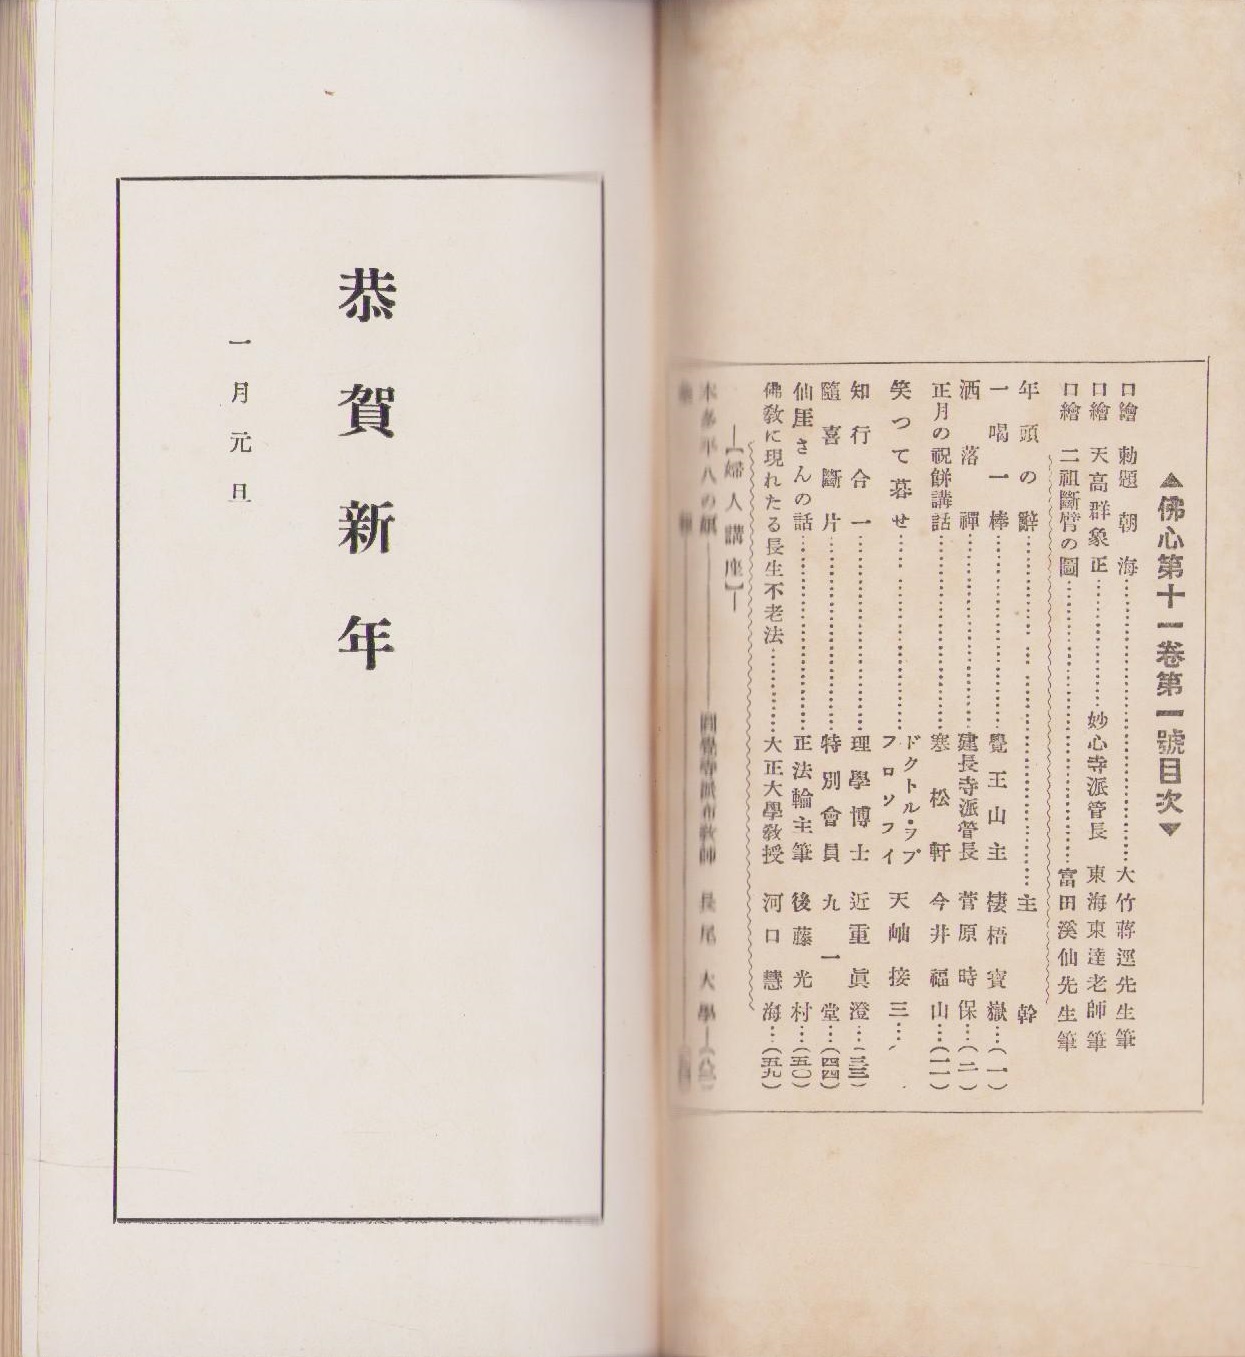 ▲佛心第十一卷第一號目次▼
口繪 勅題 朝海……大竹蔣逕先生筆
口繪 天高群象正……妙心寺派管長 東海東達老師筆
口繪 二祖斷臂の圖……富田溪仙先生筆
年頭の辭……主幹
一喝一棒……覺王山主 棲梧寶嶽…(一)
洒落禪……建長寺派管長 菅原時保…(二)
正月の祝餠講話……寒松軒 今井福山…(一一)
笑つて暮せ……ドクトル・ヲブフロソフイ 天岫接三…
知行合一……理學博士 近重眞澄…(三三)
隨喜斷片……特別會員 九一堂…(四四)
仙厓さんの話……正法輪主筆 後藤光村…(五〇)
佛敎に現れたる長生不老法……大正大學敎授 河口慧海…(五九)
―【婦人講座】―
本多平八の 圓覺寺派布敎師 長尾大學
恭賀新年
一月元旦